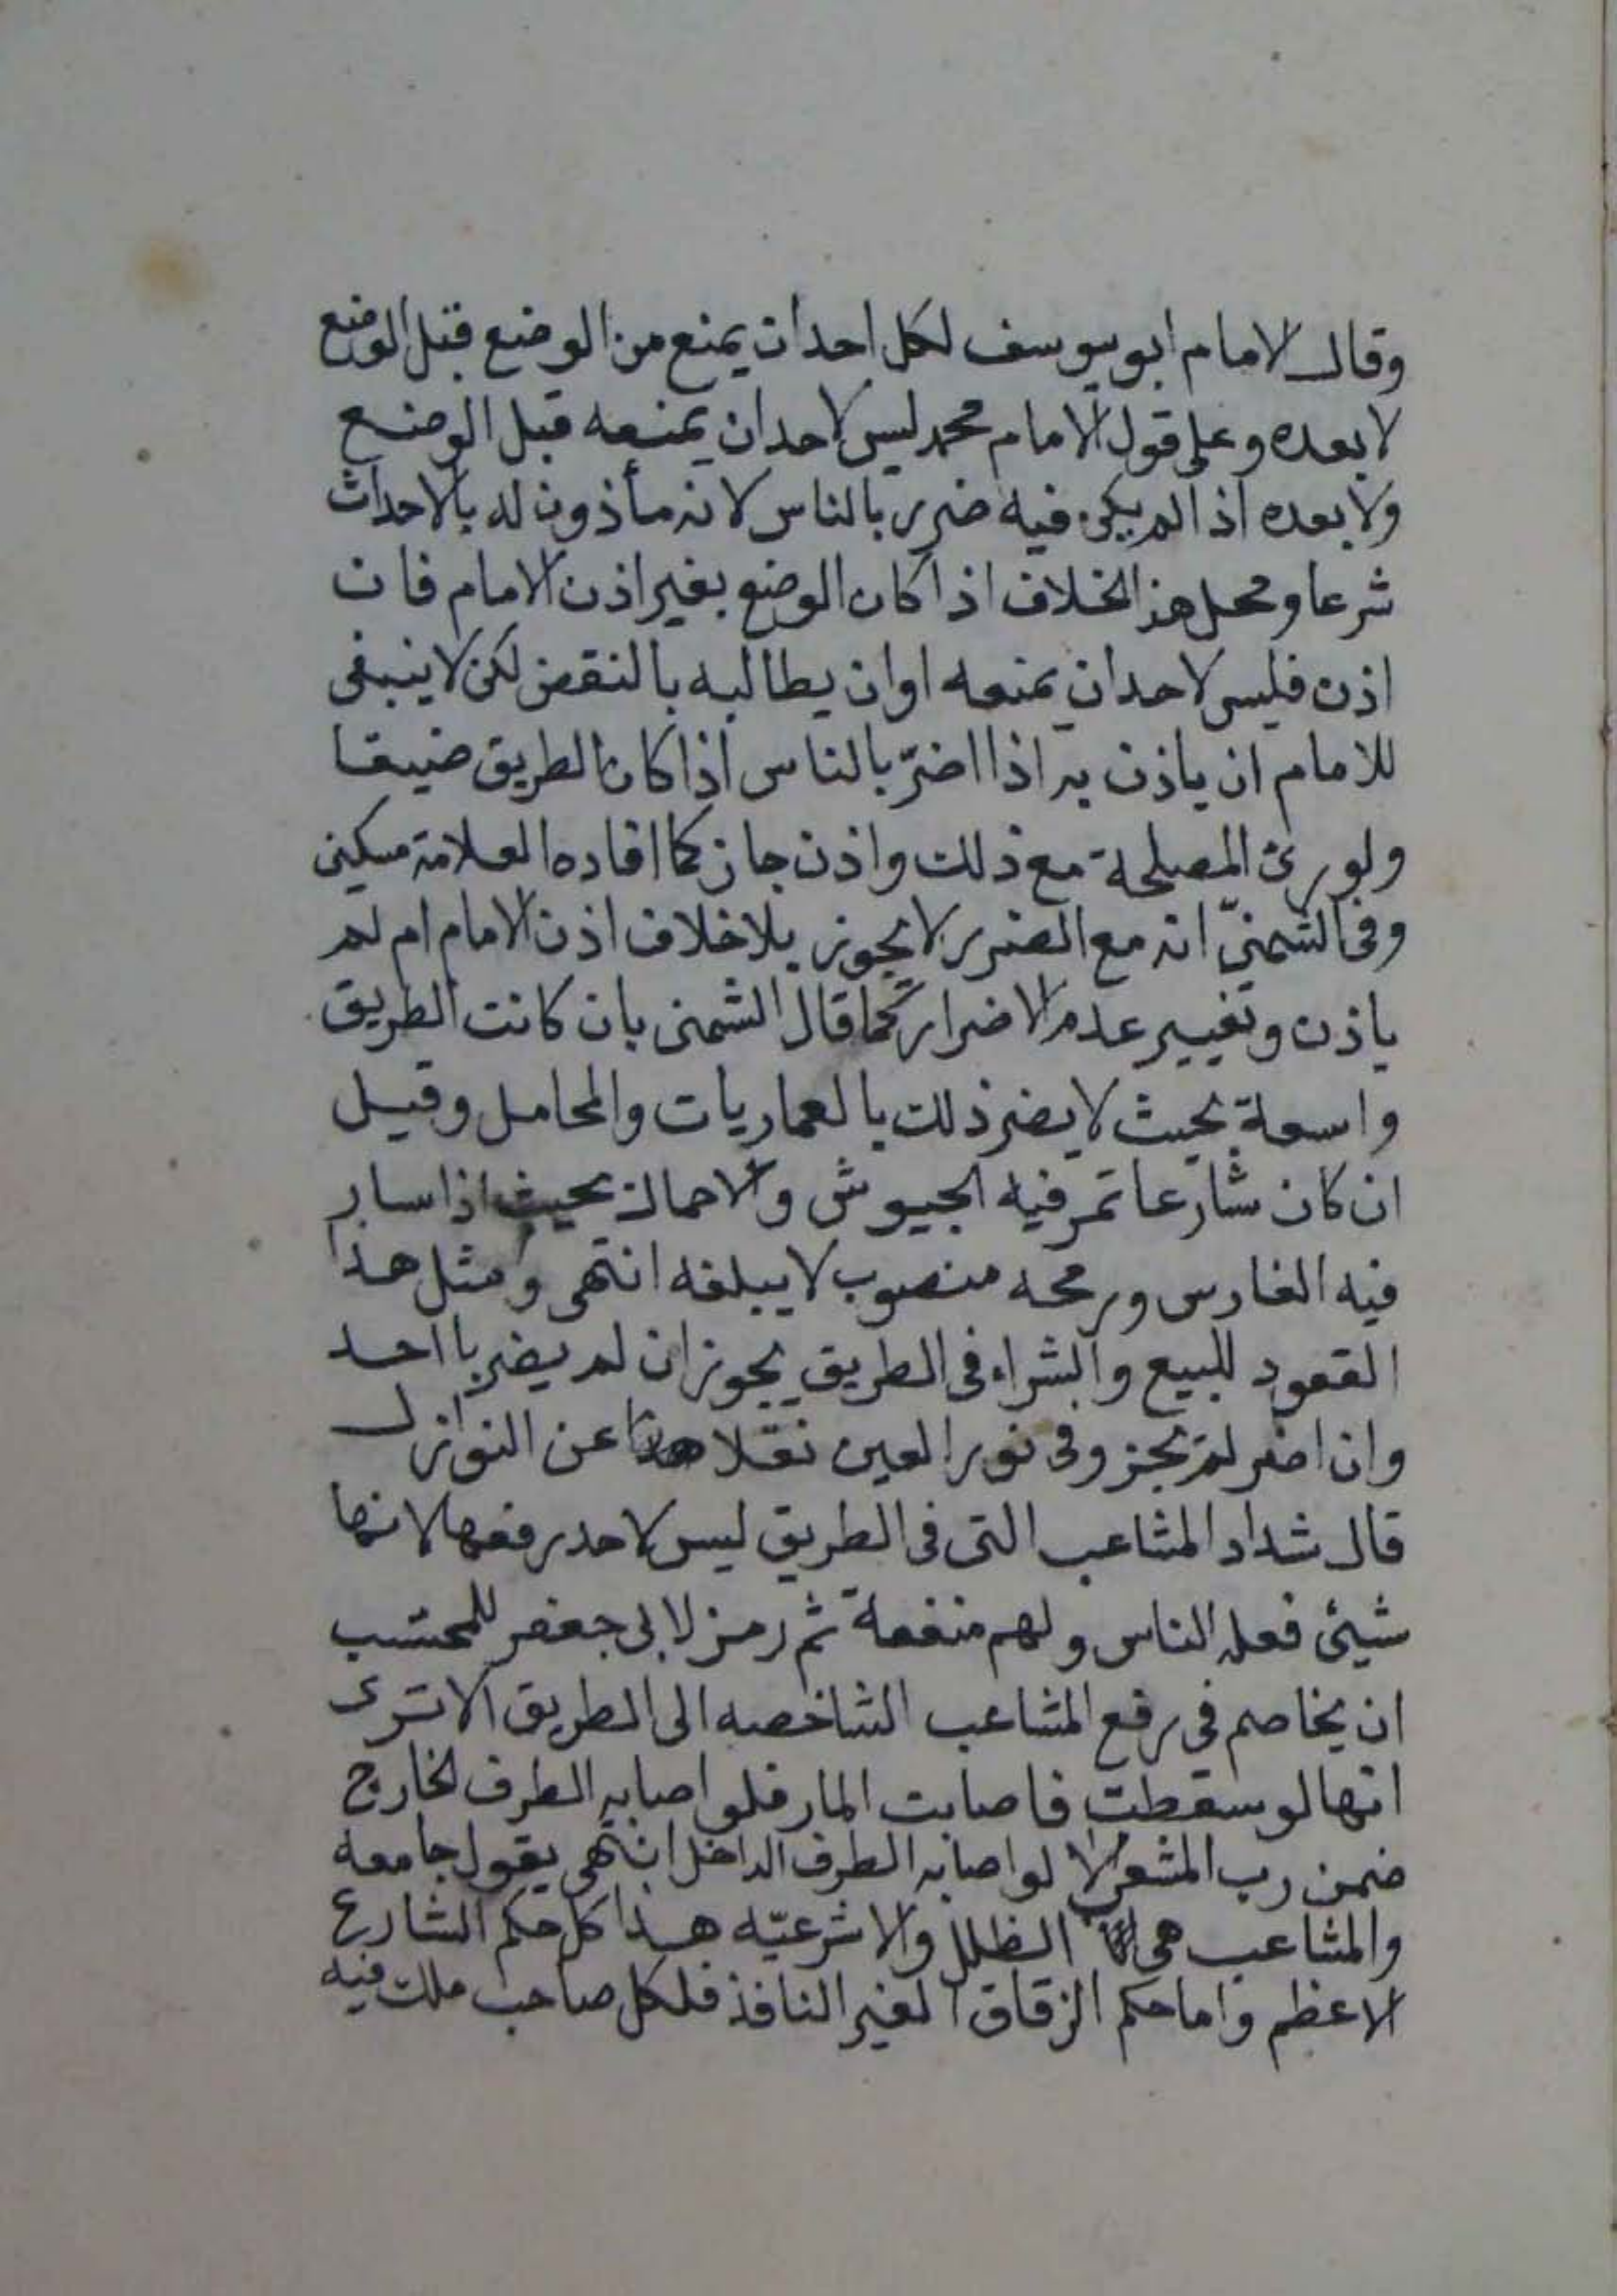 وقال الامام ابو يوسف لكل احد ان يمنع من الوضع قبل الوضع
لا بعده وعلى قول الامام محمد ليس لاحد ان يمنعه قبل الوضع
ولا بعده اذا لم يكن فيه ضرر بالناس لانه مأذون له بالاحداث
شرعا ومحل هذا الخلاف اذا كان الوضع بغير اذن الامام فان
اذن فليس لاحد ان يمنعه او ان يطالبه بالنقض لكن لا ينبغى
للامام ان ياذن به اذا اضرّ بالناس اذا كان الطريق ضيقا
ولو رئ المصلحة مع ذلك واذن جاز كما افاده العلامة مسكين
وفى الشمنىّ انه مع الضرر لا يجوز بلا خلاف اذن الامام ام لم
ياذن وتغيير عدم الاضرار كما قال الشمنى بان كانت الطريق
واسعة بحيث لا يضر ذلك بالعماريات والمحامل وقيل
ان كان شارعا تمر فيه الجيوش والاحمال بحيث اذا سار
فيه الفارس ورمحه منصوب لا يبلغه انتهى ومثل هذا
القعود للبيع والشراء فى الطريق يجوز ان لم يضر باحد
وان اضر لم يجز وفى نور العين نقلا عن النوازل
قال شداد المثاعب التى فى الطريق ليس لاحد رفعها لانها
شيئ فعله الناس ولهم منفعة ثم رمز لابى جعفر للمحتسب
ان يخاصم فى رفع المثاعب الشاخصه الى الطريق الا ترى
انها لو سقطت فاصابت المار فلو اصابه الطرف الخارج
ضمن رب المشعب لا لو اصابه الطرف الداخل انتهى يقول جامعه
والمشاعب هى الظلل والاشرعيّه هذا كل حكم الشارع
الاعظم واما حكم الزقاق الغير النافذ فلكل صاحب ملك فيه